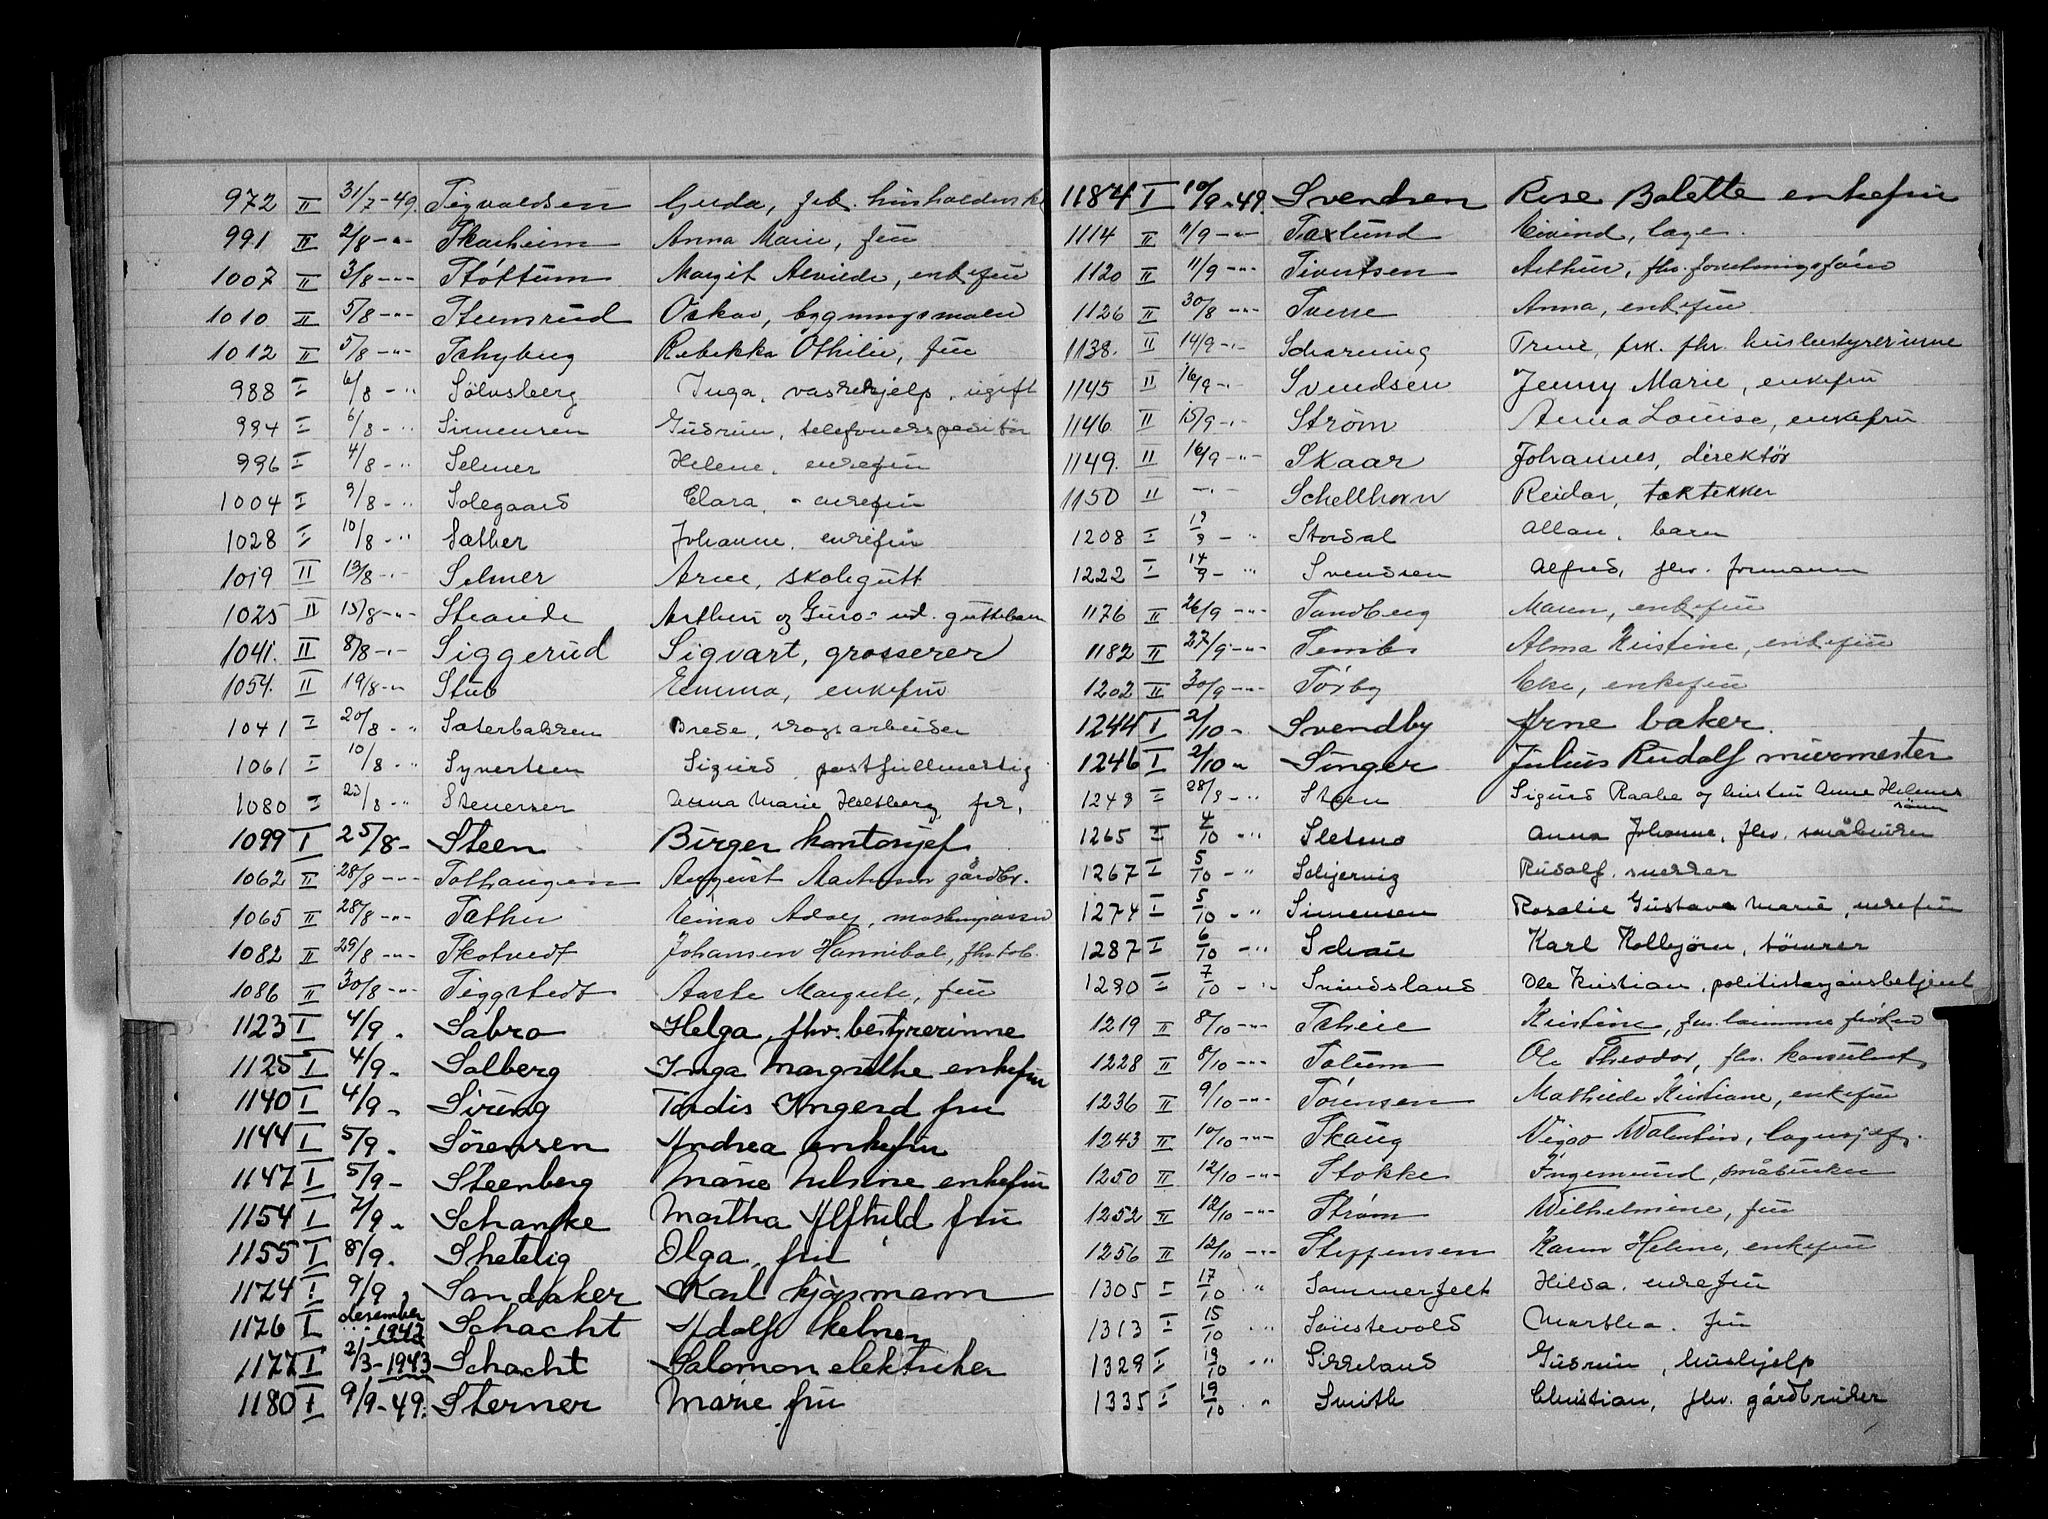 972 II 31/7-49. Sigvaldsen Gyda, frk.
991 II 2/8 -"- Skarheim Anna Marie, fru
1007 II 3/8 -"- Støttum Margit Alvilde, enkefru
1010 II 5/8 -"- Stensrud Oskar, bygningsmaler
1012 II 5/8 -"- Schyberg Rebekka Othilie, fru
988 I 6/8 -" Sølvsberg Inga, vaskehjelp, ugift
994 I 6/8 -" Simensen Gudrun, telefonekspeditør
996 I 4/8 -" Selmer Helene, enkefru
1004 I 9/8 -" Solegaard Clara, enkefru
1028 I 10/8 -" Sæther Johanne, enkefru
1019 II 13/8 -"- Selmer Arne, skolegutt
1025 II 15/8 -"- Strande Arthur og Guro's ud. guttebarn
1041. II 8/8 -"- Siggerud Sigvart, grosserer
1054. II 19/8 -" Stub Emma, enkefru
1041 I 20/8 -" Sæterbakken Brede, skogsarbeider
1061 I 10/8 -" Syvertsen Sigurd, postfullmektig
1080 I 23/8 -" Stenersen Anna Marie Heltberg, frk.
1099 I 25/8 - Steen Birger kontorsjef
1062 II 28/8 -"- Solhaugen August Martinius gårdbr.
1065 II 28/8 -"- Sæther Einar Adolf,
1082 II 29/8 -"- Skotvedt Johansen Hannibal,
1086 II 30/8 -"- Siggstedt Aaste Margrete, fru
1123 I 4/9 . Sabro Helga, fhv. bestyrerinne
1125 I 4/9 . Salberg Inga Margrethe enkefru
1140 I 4/9 . Siring Tordis Ingerd fru
1144 I 5/9 . Sörensen Andrea enkefru
1147 I 5/9 - Steenberg Marie Nilsine enkefru
1154 I 7/9 " Schanke Martha Alfhild fru
1155 I 8/9 . Shetelig Olga, fru
1174 I 9/9 , Sandaker Karl kjøpmann
1176 I desember 1942 Schacht Adolf kelner
1177 I 2/3-1943 Schacht Salomon elektriker
1180 I 9/9-49. Sterner Marie fru
1184 I 10/9-49. Svendsen Rise Bolette enkefru
1114 II 11/9 -"- Saxlund Eivind, lager
1120 II 11/9 -"- Sivertsen Arthur, fhv. forretningsfører
1126 II 30/8 -"- Sverre Anna, enkefru
1138. II 14/9 -"- Scharning Trine, frk. fhv. husbestyrerinne
1145 II 16/9 -"- Svendsen Jenny Marie, enkefru
1146 II 15/9 -"- Strøm Anna Louise, enkefru
1149. II 16/9 -"- Skaar Johannes, direktør
1150 II -"- Schellhorn Reidar, taktekker
1208 I 19/9 - " Stordal Allan, barn
1222 I 14/9 - " Svendsen Alfred, fhv. formann
1176 II 26/9 -"- Sandberg Maren, enkefru
1182 II 27/9 -"- Semb Alma Kristine, enkefru
1202 II 30/9 -"- Sørby enkefru
1244 I 2/10 - Svendby Arne baker.
1246 I 2/10 " Singer Julius Rudolf murmester
1249 I 28/9 -" Steen Sigurd Raabe og hustru Anne Helenes sønn
1265 I 4/10 " Sletmo Anna Johanne, fhv. småbruker
1267 I 5/10 -" Schjervig Rudolf, snekker
1274 I 5/10 -" Simensen Rosalie Gustava Marie, enkefru
1287 I 6/10 -" Schau Karl Kolbjørn, tømrer
1290 I 7/10 -" Svindsland Ole Kristian, politistasjonsbetjent
1219 II 8/10 -"- Scheie Kristine,
1228 II 8/10 -"- Solum Ole Theodor, fhv. konsulent
1236 II 9/10 -"- Sørensen Mathilde Kristiane, enkefru
1243 II 10/10 -"- Skaug Viggo Walentin, lagersjef.
1250 II 12/10 -"- Stokke Ingemund, småbruker
1252 II 12/10 -"- Strøm Wilhelmine, fru
1256 II 12/10 -"- Steffensen Karen Helene, enkefru
1305 I 17/10 " Sommerfelt Hilda, enkefru
1313 I 15/10 " Soustevold Marthea, fru
1329 I 19/10 " Sirreland Gudrun, hushjelp
1335 I 19/10 " Smith Christian, fhv. gårdbruker